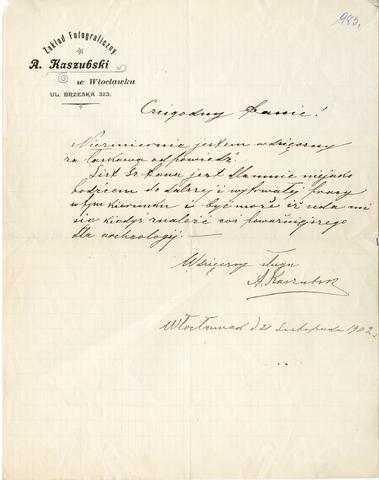 983.
Zakład Fotograficzny
A. Kaszubski
w Włocławku
UL. BRZESKA 323.
Czcigodny Panie!
Niezmiernie jestem wdzięczny
za łaskawą odpowiedź.
List Sz. Pana jest dla mnie niejako
bodźcem do dalszej i wytrwałej pracy
w tym kierunku i być może iż uda mi
się kiedyś znaleźć coś poważniejszego
dla archeologij. —
Wdzięczny sługa
A. Kaszubski
Włocławek d. 21 Listopada 1902 r.